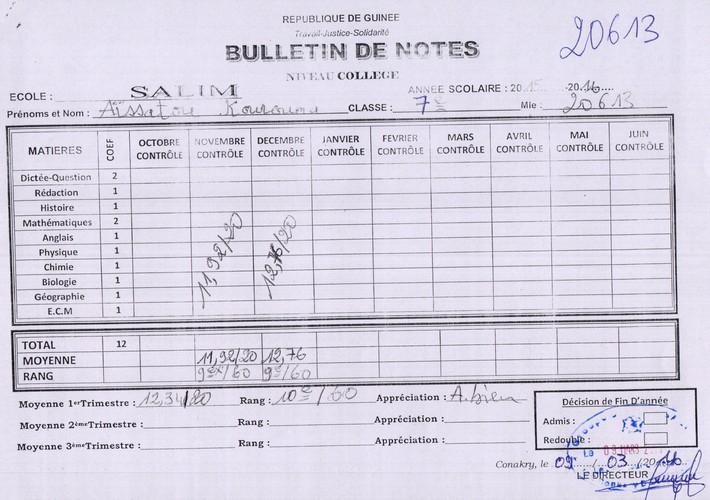 REPUBLIQUE DE GUINEE
Travail-Justice-Solidarité
20613
BULLETIN DE NOTES
NIVEAU COLLEGE
ECOLE : SALIM ANNEE SCOLAIRE : 2015 -2016
Prénoms et Nom : Aïssatou Kourouma CLASSE : 7e Mle : 20613
MATIERES COEF OCTOBRE CONTRÔLE NOVEMBRE CONTRÔLE DECEMBRE CONTRÔLE JANVIER CONTRÔLE FEVRIER CONTRÔLE MARS CONTRÔLE AVRIL CONTRÔLE MAI CONTRÔLE JUIN CONTRÔLE
Dictée-Question 2
Rédaction 1
Histoire 1
Mathématiques 2
Anglais 1
Physique 1
Chimie 1
Biologie 1
Géographie 1
E.C.M 1
11,92/20 12,76/20
TOTAL 12
MOYENNE 11,92/20 12,76
RANG 9ex/60 9e/60
Moyenne 1erTrimestre : 12,34/20 Rang : 10e/60 Appréciation : A.bien
Moyenne 2èmeTrimestre : Rang : Appréciation :
Moyenne 3èmeTrimestre : Rang : Appréciation :
Décision de Fin D'année
Admis :
Redouble :
Conakry, le 09/03/2016
LE DIRECTEUR